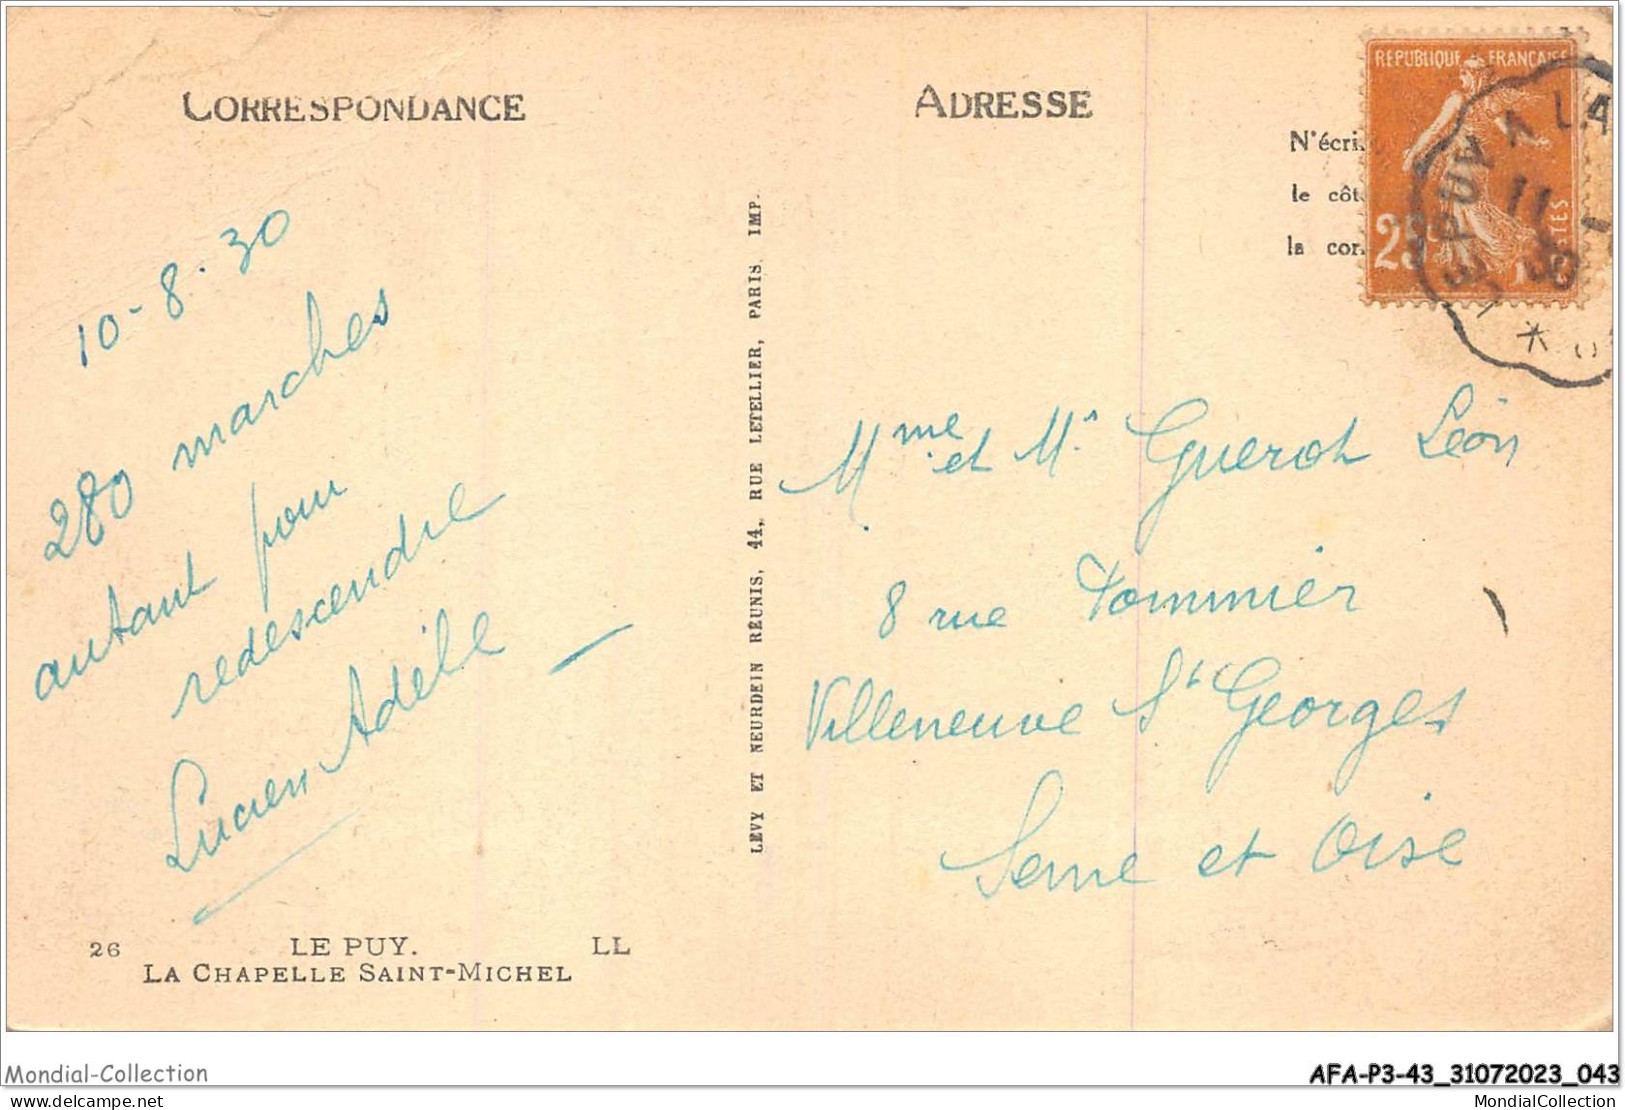 CORRESPONDANCE
ADRESSE
RÉPUBLIQUE FRANÇAISE
N'écri
le côt
la cor
25
LE PUY A LA
11
10-8.30
280 marches
autant pour
redescendre
Lucien Adèle
LÉVY ET NEURDEIN RÉUNIS, 44, RUE LETELLIER, PARIS. IMP.
Mme et Mr Guerot Léon
8 rue
Villeneuve St Georges
Seine et Oise
26 LE PUY. LL
LA CHAPELLE SAINT-MICHEL
Mondial-Collection
AFA-P3-43_31072023_043
delcampe.net
MondialCollection